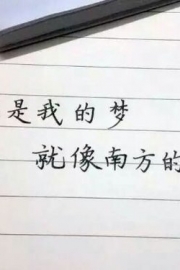 是我的梦
就像南方的